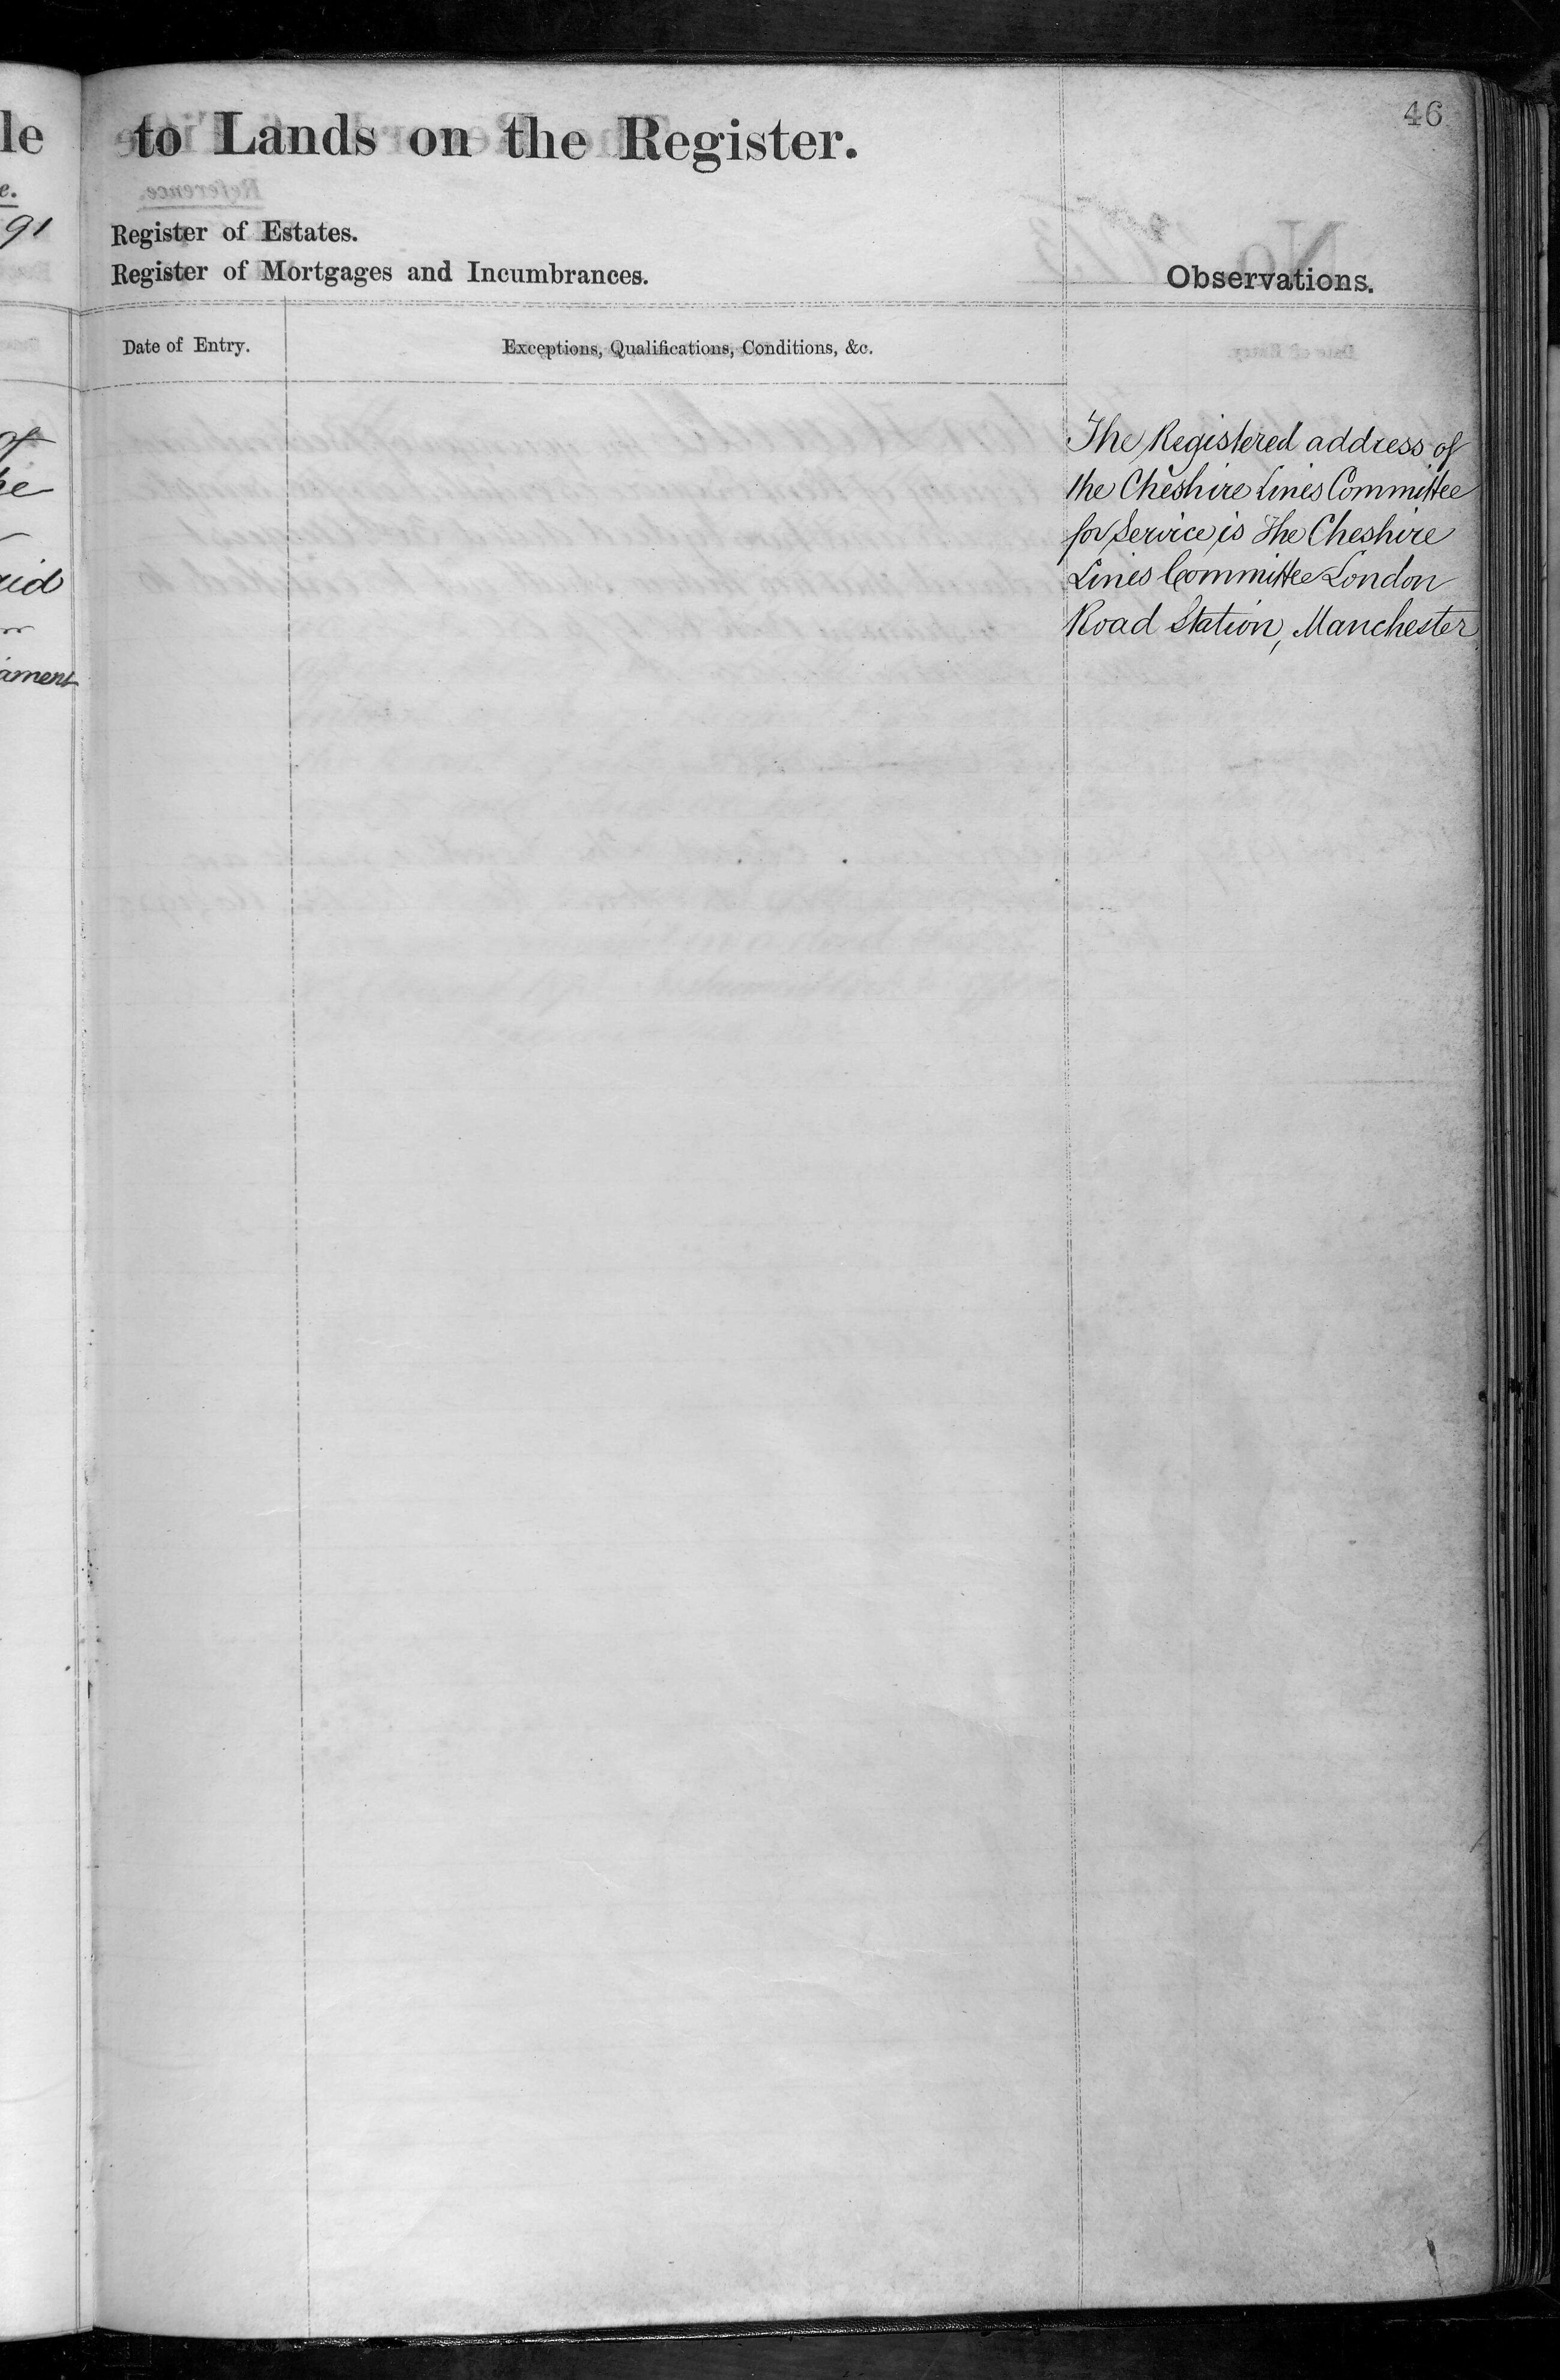 46
to Lands on the Register.
Register of Estates.
Register of Mortgages and Incumbrances.
Observations.
Date of Entry.
Exceptions, Qualifications, Conditions, &c.
The Registered address of
the Cheshire Lines Committee
for Service is The Cheshire
Lines Committee London
Road Station, Manchester
le
e.
91
of
he
aid
ament